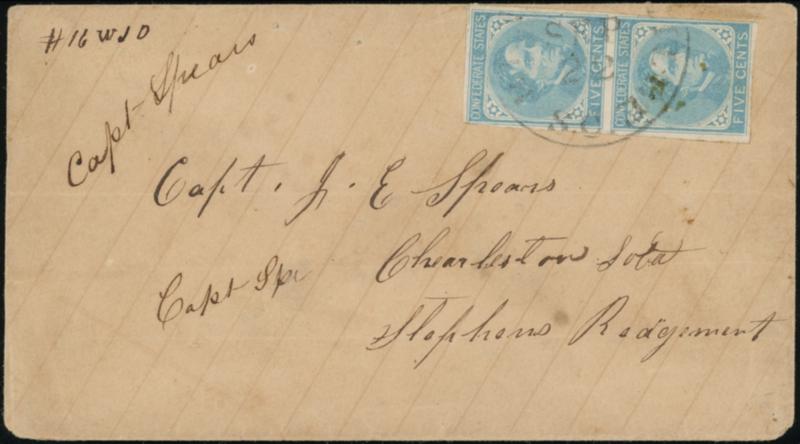 #16 WJD
Capt Spears
CONFEDERATE STATES
FIVE CENTS
CONFEDERATE STATES
FIVE CENTS
SEP
S.C.
Capt. J. E Spears
Charleston
Capt Spe
Stephens Redgement